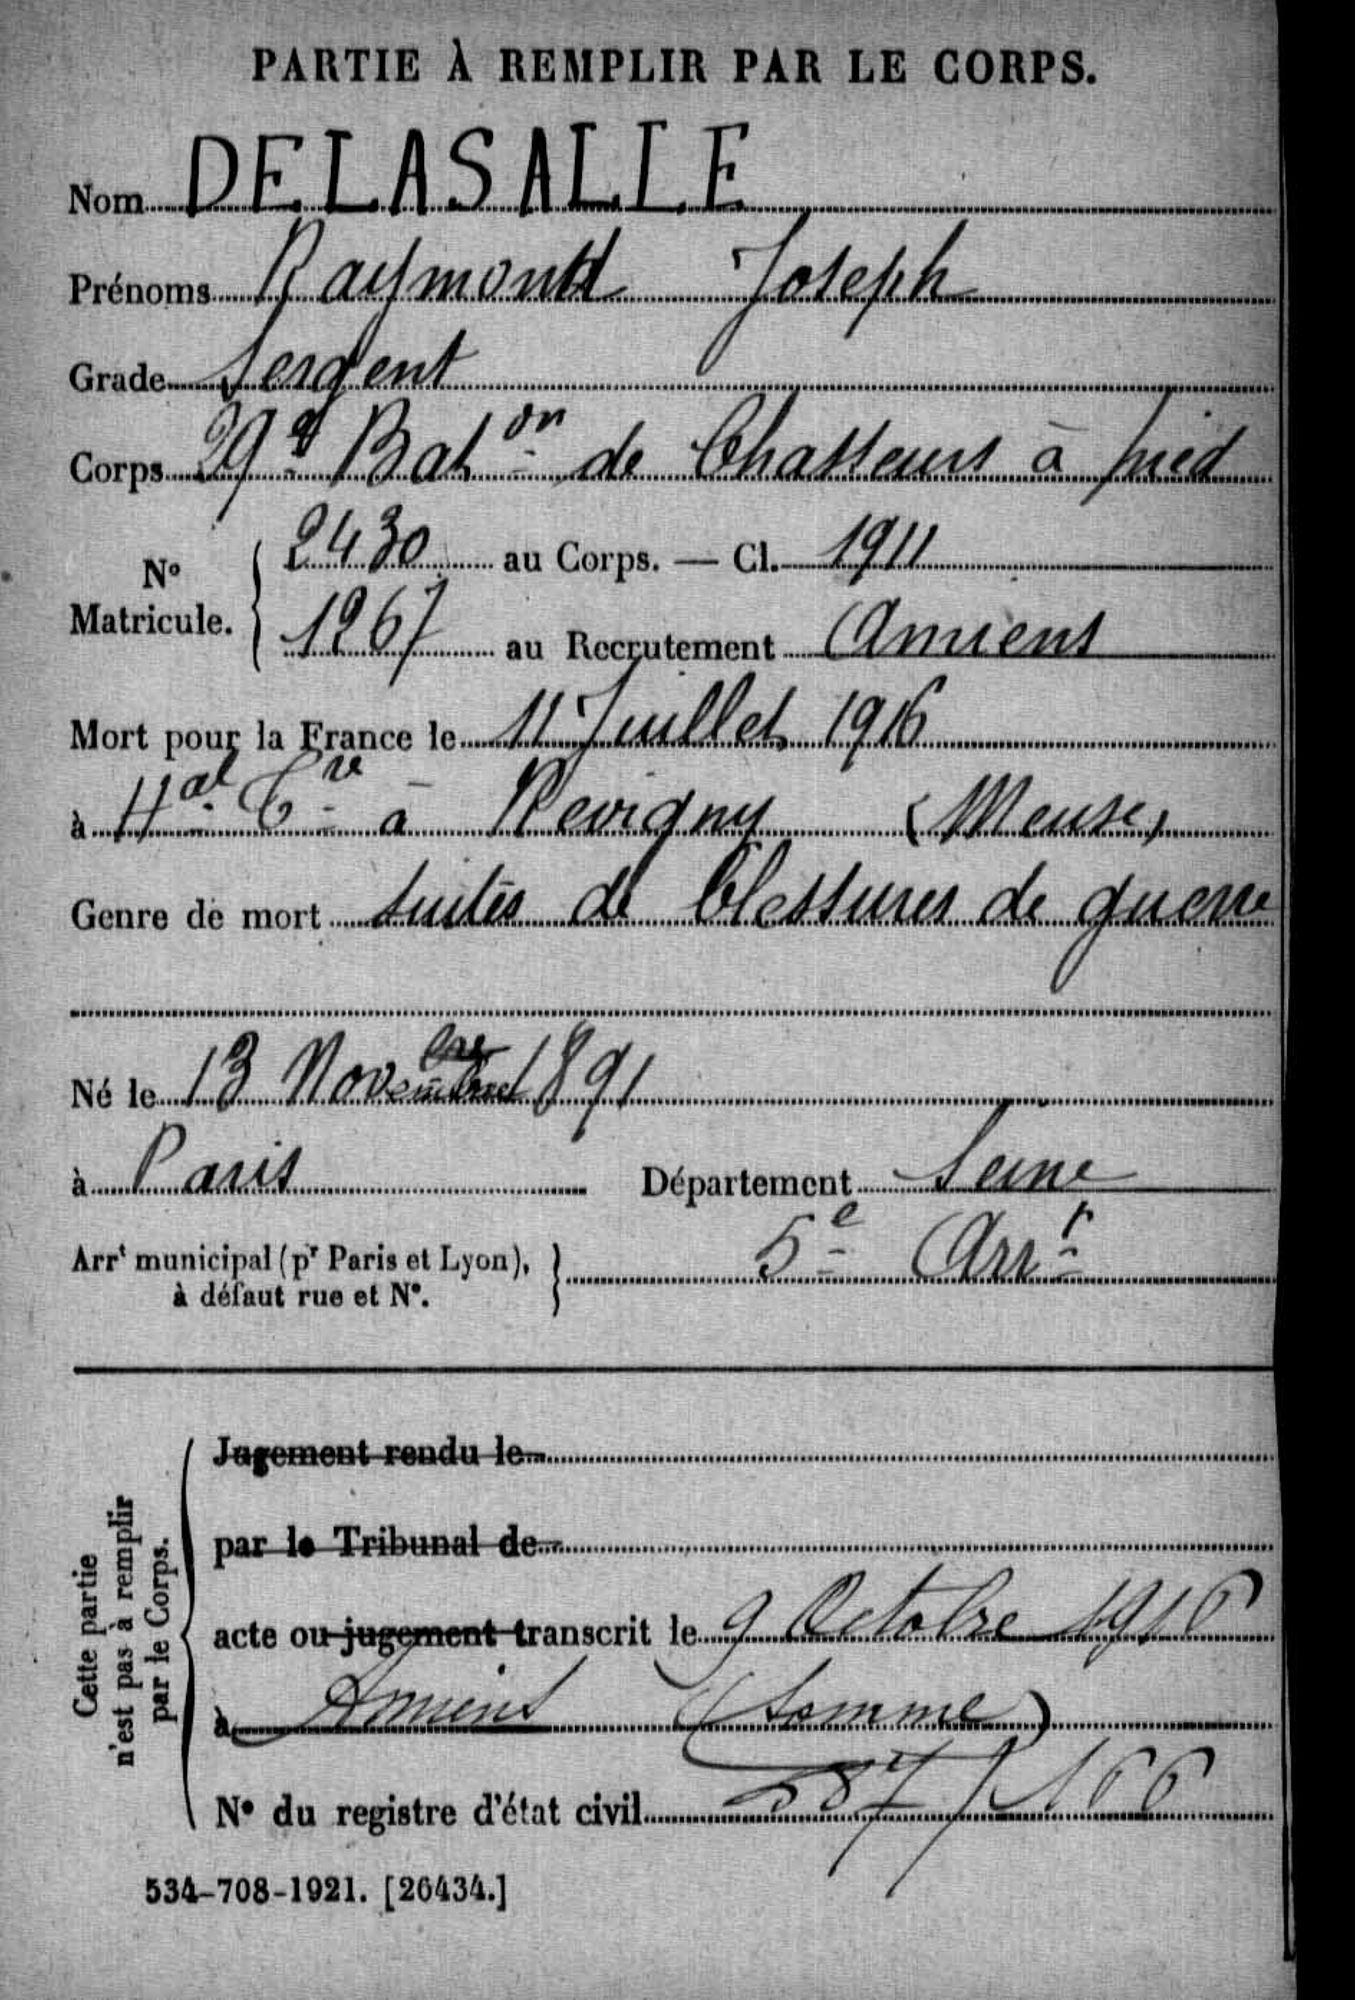 PARTIE À REMPLIR PAR LE CORPS.
Nom DELASALLE
Prénoms Raymond Joseph
Grade Sergent
Corps 29e Baton de Chasseurs à pied
No Matricule. 2430 au Corps. — Cl. 1911
1267 au Recrutement Amiens
Mort pour la France le 11 Juillet 1916
à Hal Cre à Revigny (Meuse)
Genre de mort suites de blessures de guerre
Né le 13 Novembre 1891
à Paris Département Seine
Arrt municipal (pr Paris et Lyon), à défaut rue et No. 5e Arrt
Cette partie n'est pas à remplir par le Corps.
Jugement rendu le
par le Tribunal de
acte ou jugement transcrit le 9 Octobre 1916
à Amiens (Somme)
No du registre d'état civil 587/166
534-708-1921. [26434.]